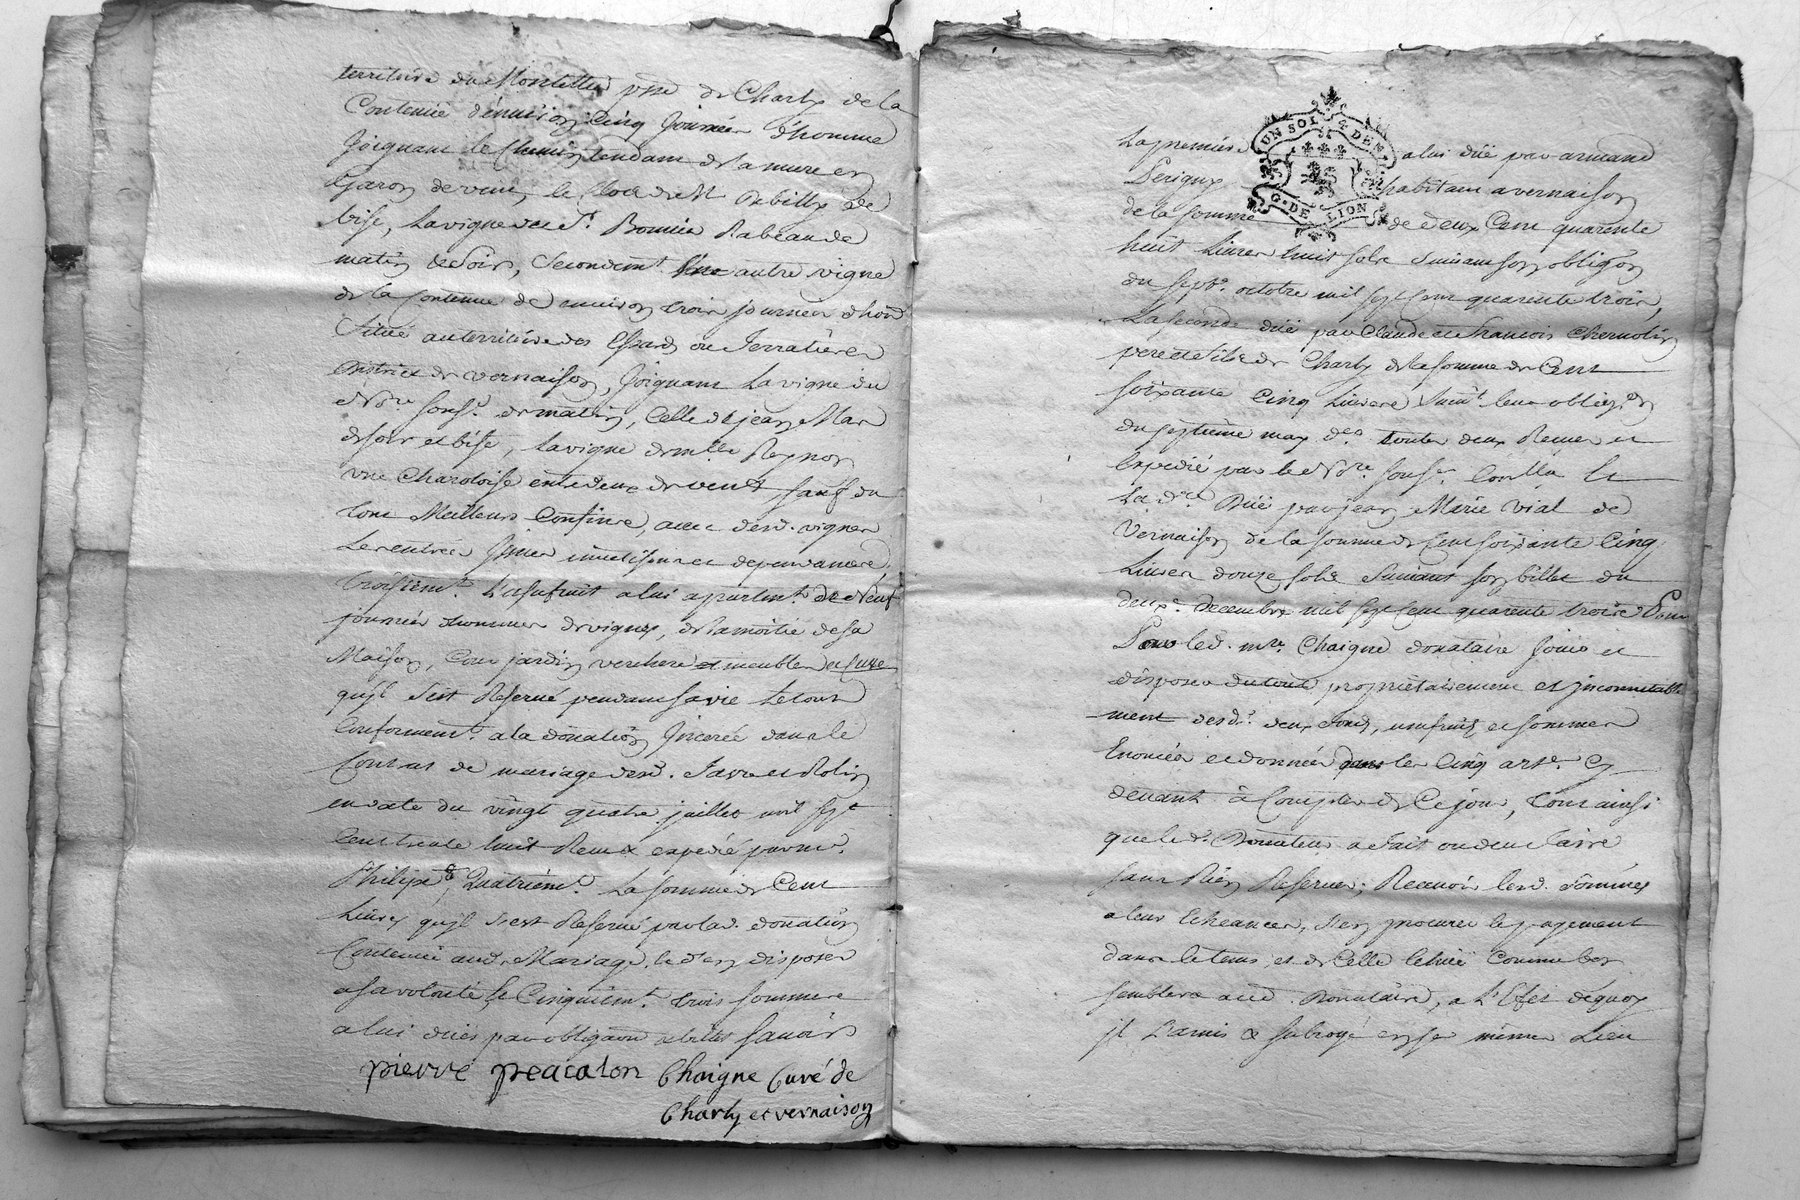 territoire du Montellier psse de Charly de la
Contenue d'environ Cinq Journées d'homme
Joignant le Chemin tendant de la mure en
Garon de vent, le Clos de Mr de
bise, La vigne des d.t Bonnier Rabeau de
matin de Soir, Secondemt Une autre vigne
de la Contenue de environ trois journées d'hom
Située au territoire des Essards ou Terratières
district de vernaison, Joignant La vigne du
Nore souss.é de matin, Celle de jean Mar
de soir et bise, La vigne de mlle Reynon
une Charoloise entredeux de vent sauf du
tout Meilleurs Confins, avec desd. vignes
Les entrées Issues et dependances,
troisièmt L'usufruit a lui apartent de Neuf
journées d'hommes de vignes, de la moitié de sa
Maison, Cour jardin verchere et meubles
qu'jl s'est Reservé pendant sa vie Le tout
Conformemt a la donation Jnserée dans le
Contrat de mariage desd. Favre et Rolin
en date du vingt quatre juillet mil sept
Cent trente huit Receu & expedié par me
Philipe, Quatriemt La somme de Cent
Livres qu'jl s'est Reservé par lad. donation
Contenue aud. Mariage, le d'en disposer
a sa volonté, & Cinquiemt trois sommes
a lui dües par obligaon et billet Savoir
pierre peacalon Chaigne Curé de
Charly et vernaison
UN SOL 4 DEN.
G.DE LION
La premiere a lui düe par armand
Perigux habitant a vernaison
de la somme de deux Cent quarente
huit Livres huit sols Suivant son obligõn
du sept.e octobre mil sept cent quarente trois,
La seconde düe par Claude et François Chermolin
pere et fils de Charly de la somme de Cent
soixante Cinq Livres Suivt leur obligõn
du septieme may d.o toutes deux Receues et
Expedié par le Nore souss.é Contla et
La dre Düe par jean Marie vial de
Vernaison de la somme de Cent soixante Cinq
Livres douze sols Suivant son billet du
deuxe decembre mil sept Cent quarente trois Pour
Par led. mre Chaigne donataire jouir et
disposer du tout proprietairement et jncomutable
ment desd. deux fonds, usufruit et sommes
Enoncées et données dans les Cinq arte. Cy
devant à Compter de Ce jour, tout ainsi
que le d. Donateur a fait ou deu faire
sans Rien Reserver; Recevoir lesd. sommes
a leur Echeances, s'en procurer le payement
dans le tems, et de Celle Echüe Comme bon
semblera aud. Donataire, a L'Efet dequoy
jl L'a mis & subrogé en son même Lieu